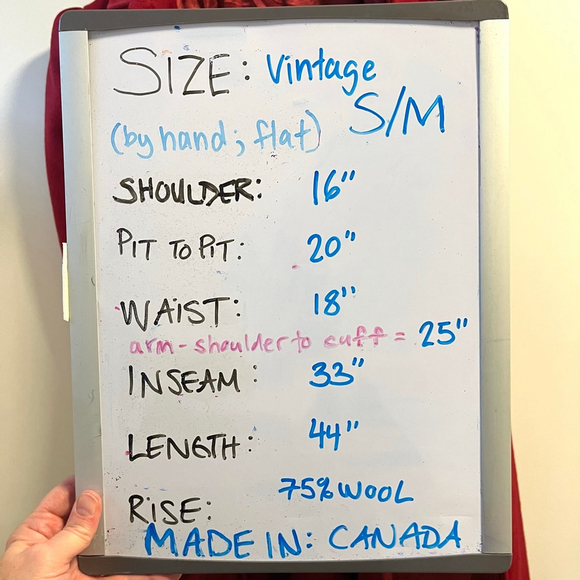 SIZE: Vintage
S/M
(by hand; flat)
SHOULDER: 16"
PIT TO PIT: 20"
WAIST: 18"
arm-shoulder to cuff = 25"
INSEAM: 33"
LENGTH: 44"
75% WOOL
RISE:
MADE IN: CANADA